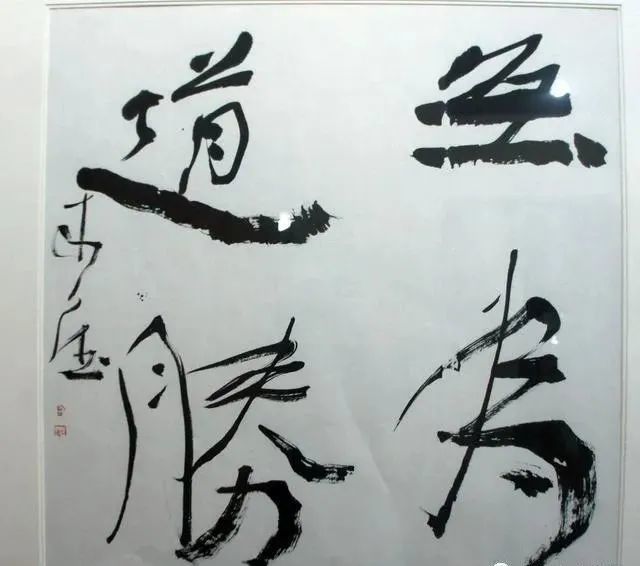 無為
道勝